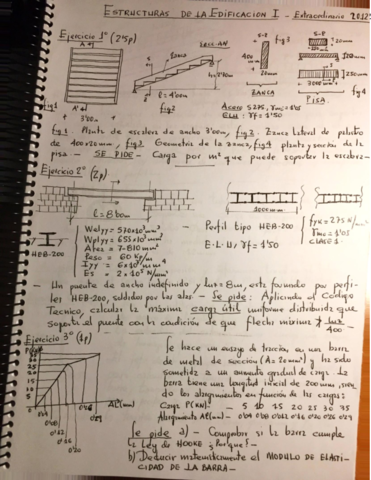 ESTRUCTURAS DE LA EDIFICACION I - Extraordinario 2012
Ejercicio 1º (2'5p)
A
A'
3'00m
fig1
ZANCA
l = 4'00m
fig2
SECC. AA'
S-P
400 mm
20mm
ZANCA
fig3
S-P
20mm
PISA.
fig4
Acero S275, γmo=1'05
ELU: γf=1'50
fig1. Planta de escalera de ancho 3'00m, fig2. Zanca lateral de
400x20mm, fig3 Geometría de la zanca, fig4 planta y sección de la
pisa - SE PIDE - Carga por m² que puede soportar la escalera -
Ejercicio 2º (2p)
l = 8'00m
1000mm
HEB-200
Welyy = 570x10³mm³
Wplyy = 655x10³mm³
Area = 7.810mm²
Peso = 60 Kp/m
Iyy = 6x10⁷mm⁴
Es = 2x10⁵ N/mm²
- Perfil tipo HEB-200
- E.L.U, γf=1'50
fyk=275 N/mm²
γmo=1'05
CLASE 1
- Un puente de ancho indefinido y luz=8m, está formado por perfi-
les HEB-200, soldados por las alas - Se pide: Aplicando el Código
Técnico, calcular la máxima carga útil uniforme distribuida que
soporta el puente con la condición de que flecha máxima ≯ luz/400
Ejercicio 3º (1p)
P(KN)
ΔL(mm)
Se hace un ensayo de tracción, en una barra
de metal de sección (A=20mm²) y ha sido
sometida a un aumento gradual de carga. La
barra tiene una longitud inicial de 200mm, sien-
do los alargamientos en función de las cargas:
Carga P(KN): - 5 10 15 20 25 30 35
Alargamiento ΔL(mm) -
Se pide a) - Comprobar si la barra cumple
la Ley de HOOKE ¿Por qué? -
b) Deducir matemáticamente el MODULO DE ELASTI-
CIDAD DE LA BARRA -